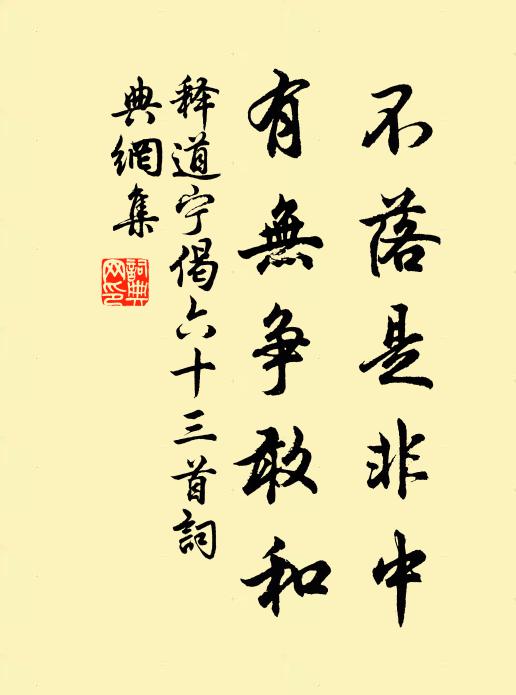 不落是非中
有無争敢和
释道宁偈六十三首詞
典網集
詞典
网印